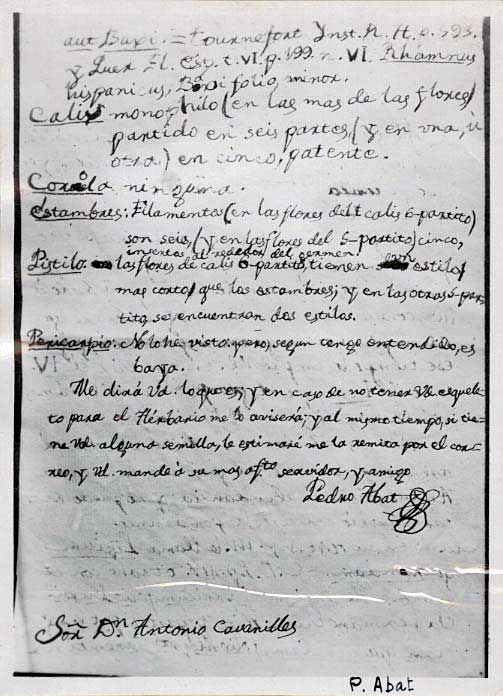 aut Buxi. = Tournefort Ynst. R. H. p. 593.
y Quer Fl. esp. t. VI. p. 199. n. VI. Rhamnus
hispanicus, Buxi folio, minor.
Caliz monophilo (en las mas de las flores)
partido en seis partes, (y en una, ù
otra) en cinco, patente.
Corola ninguna.
Estambres: Filamentos (en las flores del calis 6-partito)
son seis, (y en las flores del 5-partito) cinco,
insertos al rededor del germen.
Pistilo: las flores de calis 6-partito, tienen un estilo
mas corto que los estambres; y en las otras 5-par-
tito, se encuentran dos estilos.
Pericarpio: No lo he visto: pero, segun tengo entendido, es
VI baya.
Me dirá Vd. lo que es; y en caso de no tener Vd. esquele-
to para el Herbario me lo avisará; y al mismo tiempo, si tie-
ne Vd. alguna semilla, le estimaré me la remita por el cor-
reo, y Vd. mande à su mas af.to servidor, y amigo
Pedro Abat
Sor. Dn. Antonio Cavanilles
P. Abat